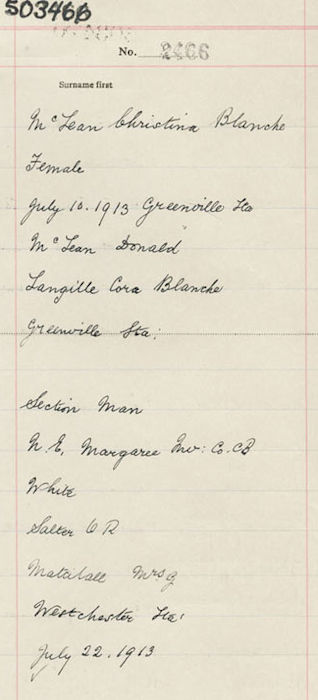 50346B
No. 2466
Surname first
McLean Christina Blanche
Female
July 10. 1913 Greenville Sta
McLean Donald
Langille Cora Blanche
Greenville Sta:
Section Man
N. E. Margaree Inv: Co. CB
White
Salter O R
Matatall Mrs G
Westchester Sta:
July 22. 1913